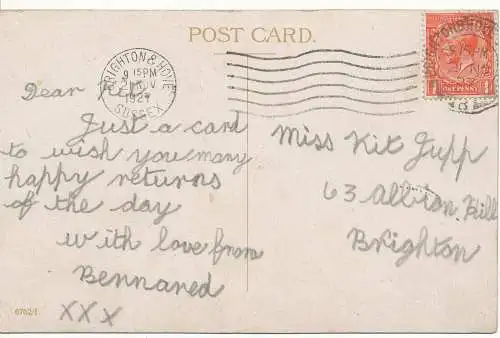 POST CARD.
BRIGHTON & HOVE
9 15 PM
NOV
1927
SUSSEX
ONE PENNY
Dear Kit
Just a card
to wish you many
happy returns
of the day
with love from
Bennared
XXX
Miss Kit Jupp
63 Albion Hill
Brighton
6762/1